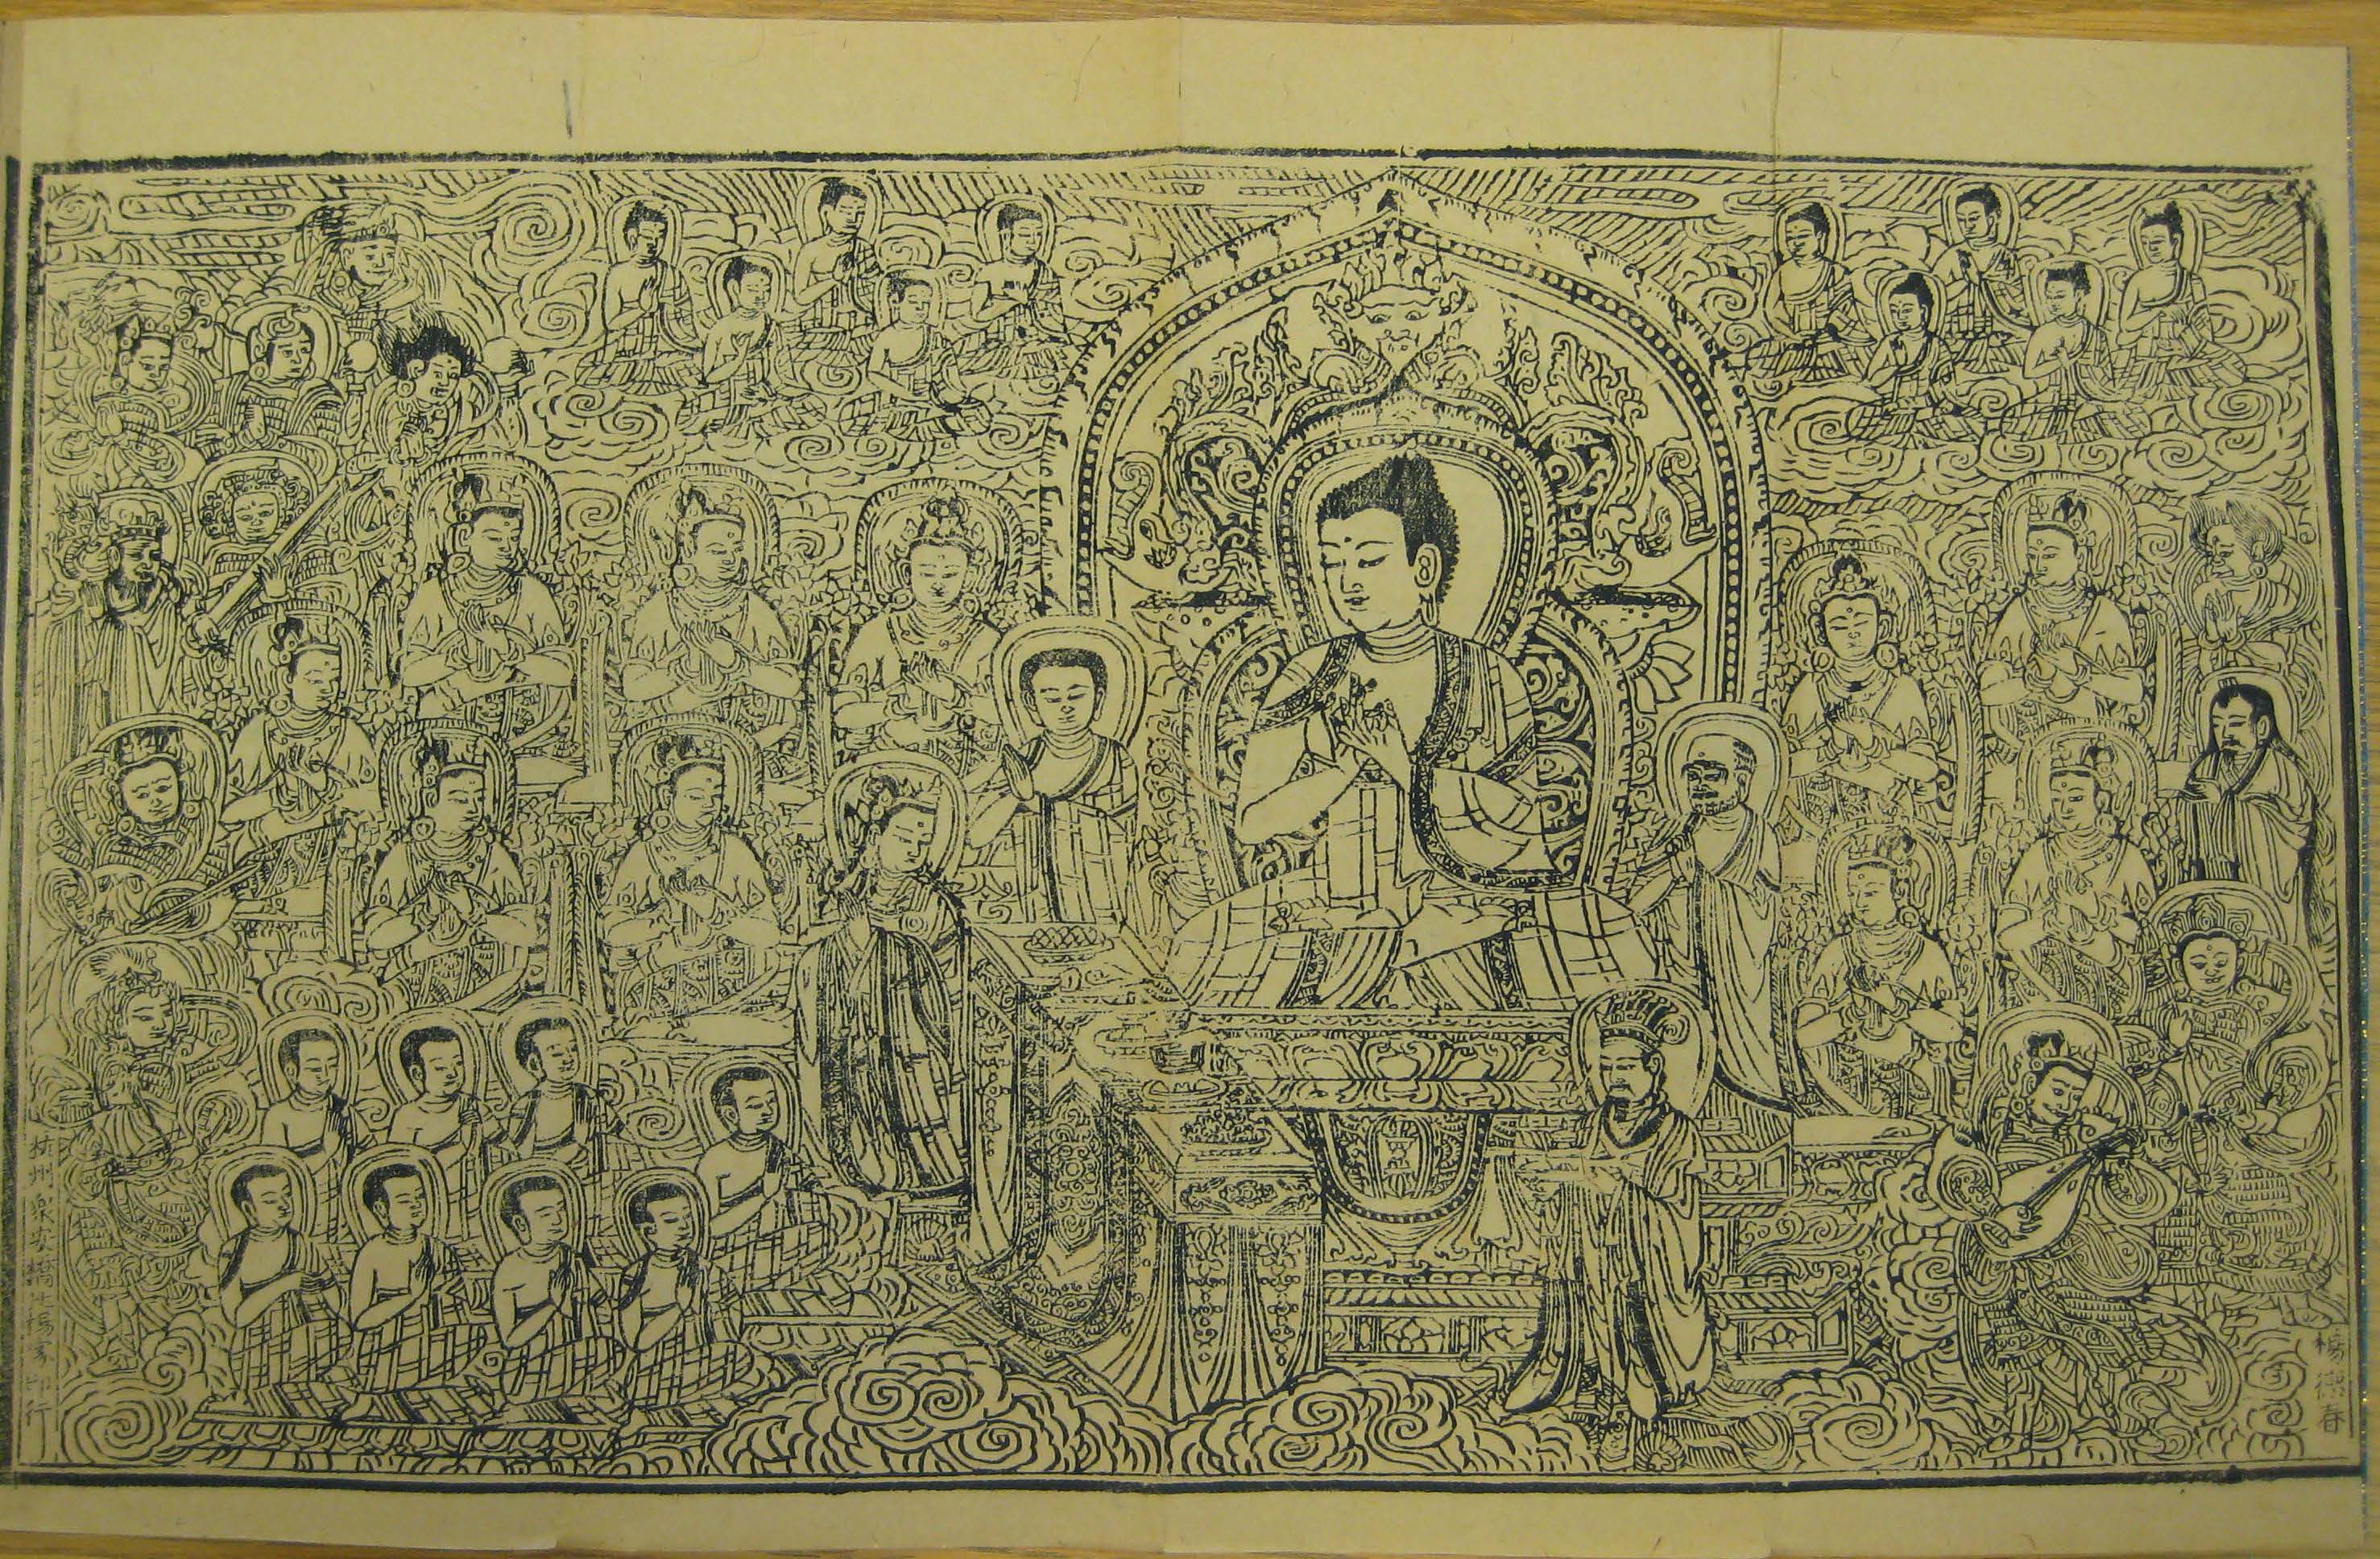 楊德春
杭州衆安橋北楊家印行